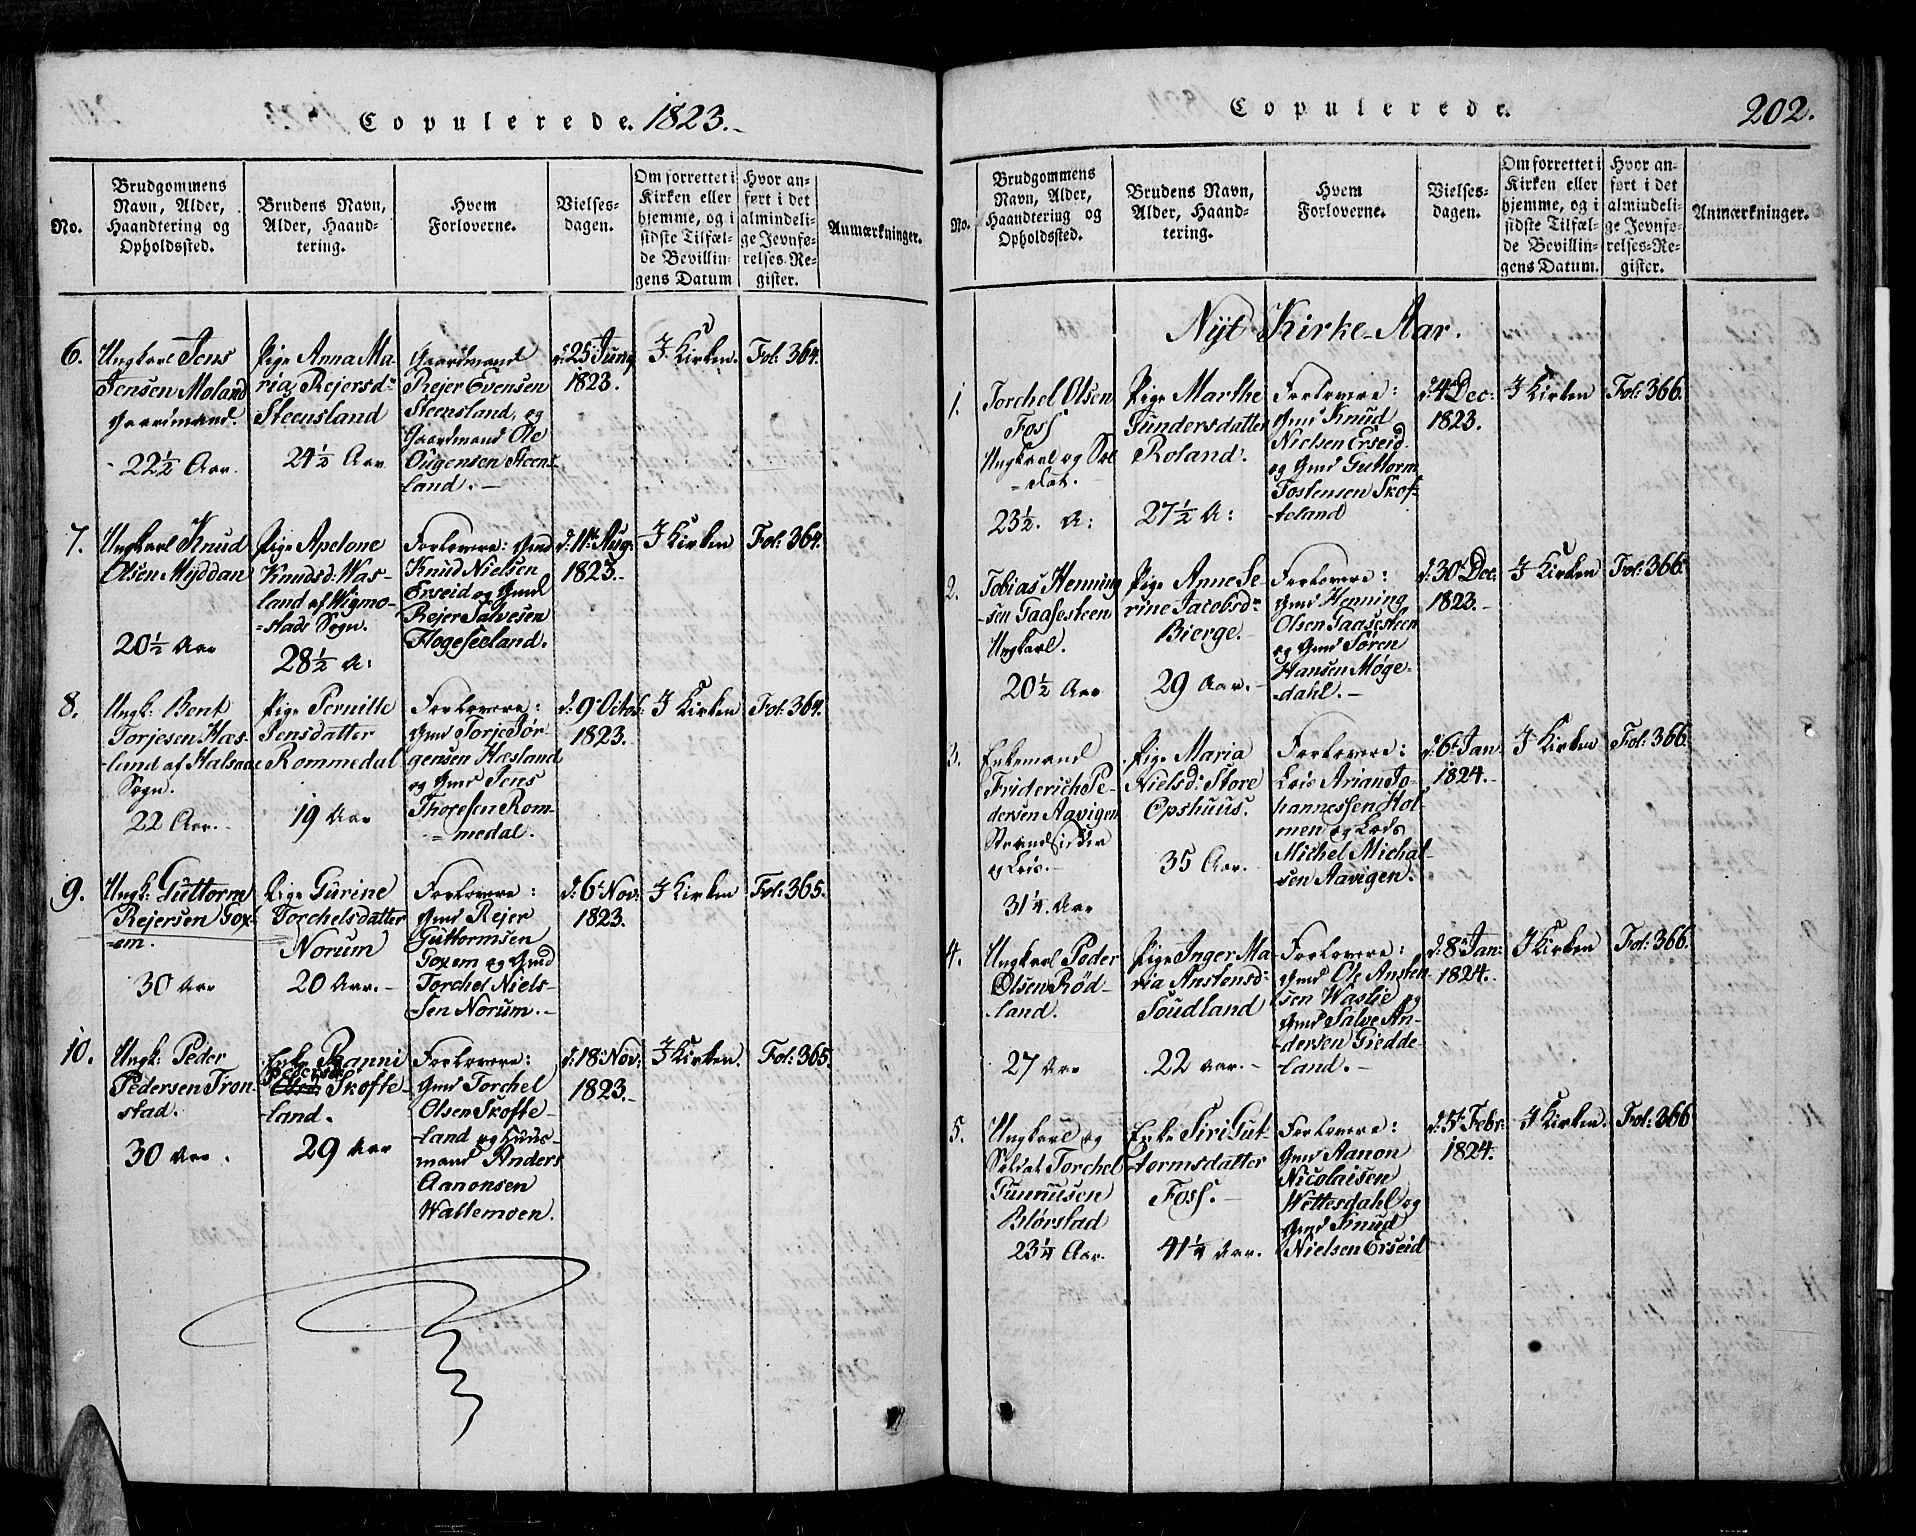 Copulerede. 1823.
No.
Brudgommens
Navn, Alder,
Haandtering og
Opholdssted.
Brudens Navn,
Alder, Haand-
tering.
Hvem
Forloverne.
Vielses-
dagen.
Om forrettet i
Kirken eller
hjemme, og i
sidste Tilfæl-
de Bevillin-
gens Datum
Hvor an-
ført i det
almindeli-
ge Jevnfø-
relses-Re-
gister.
Anmærkninger.
6.
Ungkarl Jens
Jensen Moland
Gaardmand.
22½ Aar.
Pige Anna Ma-
ria Rejersdr
Steensland
24½ Aar
Gaardmand
Rejer Evensen
Steensland, og
Gaardmand Ole
Ougensen Steens-
land.-
d: 25 Juny
1823.
I Kirken.
Fol: 364.
7.
Ungkarl Knud
Olsen Myddan
20½ Aar
Pige Apelone
Knudsd: Was-
land af Wigmo-
stads Sogn.
28½ A:
Forlovere: Gmd
Knud Nielsen
Erseid og Gmd
Rejer Salvesen
Hogeseeland.
d: 11te Aug:
1823.
I Kirken
Fol: 364.
8.
Ungk: Bent
Torjesen Hæs-
land af Halsaae
Sogn.
22 Aar.
Pige Pernille
Jensdatter
Rommedal
19 Aar
Forlovere:
Gmd Torje Jør-
gensen Hæsland
og Gmd Jens
Thoresen Rom-
medal.
d: 9 Octob:
1823.
I Kirken
Fol: 364.
9.
Ungk: Guttorm
Rejersen Tox-
em.
30 Aar
Pige Gurine
Torchelsdatter
Norum
20 Aar.-
Forlovere:
Gmd Rejer
Guttormsen
Toxem og Gmd
Torchel Niels-
sen Norum.-
d: 6t Nov:
1823.
I Kirken
Fol: 365.
10.
Ungk: Peder
Pedersen Tron-
stad.
30 Aar.
Enke Ranni
Skofte-
land.
29 Aar
Forlovere:
Gmd Torchel
Olsen Skofte-
land og Huus-
mand Anders
Aanonsen
Wallemoen.
d: 18 Nov:
1823.-
I Kirken.
Fol: 365.
Copulerede.
202.
No.
Brudgommens
Navn, Alder,
Haandtering og
Opholdssted.
Brudens Navn,
Alder, Haand-
tering.
Hvem
Forloverne.
Vielses-
dagen.
Om forrettet i
Kirken eller
hjemme, og i
sidste Tilfæl-
de Bevillin-
gens Datum.
Hvor an-
ført i det
almindeli-
ge Jevnfø-
relses-Re-
gister.
Anmærkninger.
Nyt Kirke-Aar.
1.
Torchel Olsen
Foss
Ungkarl og Sol-
dat.
23½. A:
Pige Marthe
Gundersdatter
Roland.
27½ A:
Forlovere:
Gmd Knud
Nielsen Erseid.
og Gmd Guttorm
Tostensen Skof-
teland
d: 4 Dec:
1823.
I Kirken
Fol: 366.
2.
Tobias Henning-
sen Taasesteen
Ungkarl.
20½ Aar
Pige Anne Se-
rine Jacobsdr
Bierge.-
29 Aar.-
Forlovere:
Gmd Henning
Olsen Taasesteen
og Gmd Søren
Hansen Møge-
dahl.-
d: 30 Dec.
1823.-
I Kirken
Fol: 366.
3.
Enkemand
Friderich Pe-
dersen Aavigen
Strandsidder
og Lods.-
31¼. Aar
Pige Maria
Nielsd: Store
Opshuus.
35 Aar.
Forlovere:
Lods Arian Jo-
hannessen Hol-
men og Lods
Michel Michal-
sen Aavigen.
d: 6t Jan
1824.-
I Kirken
Fol: 366.
4.
Ungkarl Peder
Olsen Rød-
land.
27 Aar
Pige Inger Ma-
ria Anstensd:
Soudland
22 Aar.-
Forlovere:
Gmd Ole Ansten-
sen Waslie og
Gmd Salve An-
dersen Giedde-
land.-
d: 8 Jan:
1824.
I Kirken
Fol: 366.
5.
Ungkarl og
Soldat Torchel
Gunnusen
Blørstad
23¼ Aar.
Enke Siri Gut-
tormsdatter
Foss.-
41¼ Aar.
Forlovere:
Gmd Aanon
Nicolaisen
Wettesdahl og
Gmd Knud
Nielsen Erseid
d: 5t Febr:
1824.
I Kirken.
Fol: 366